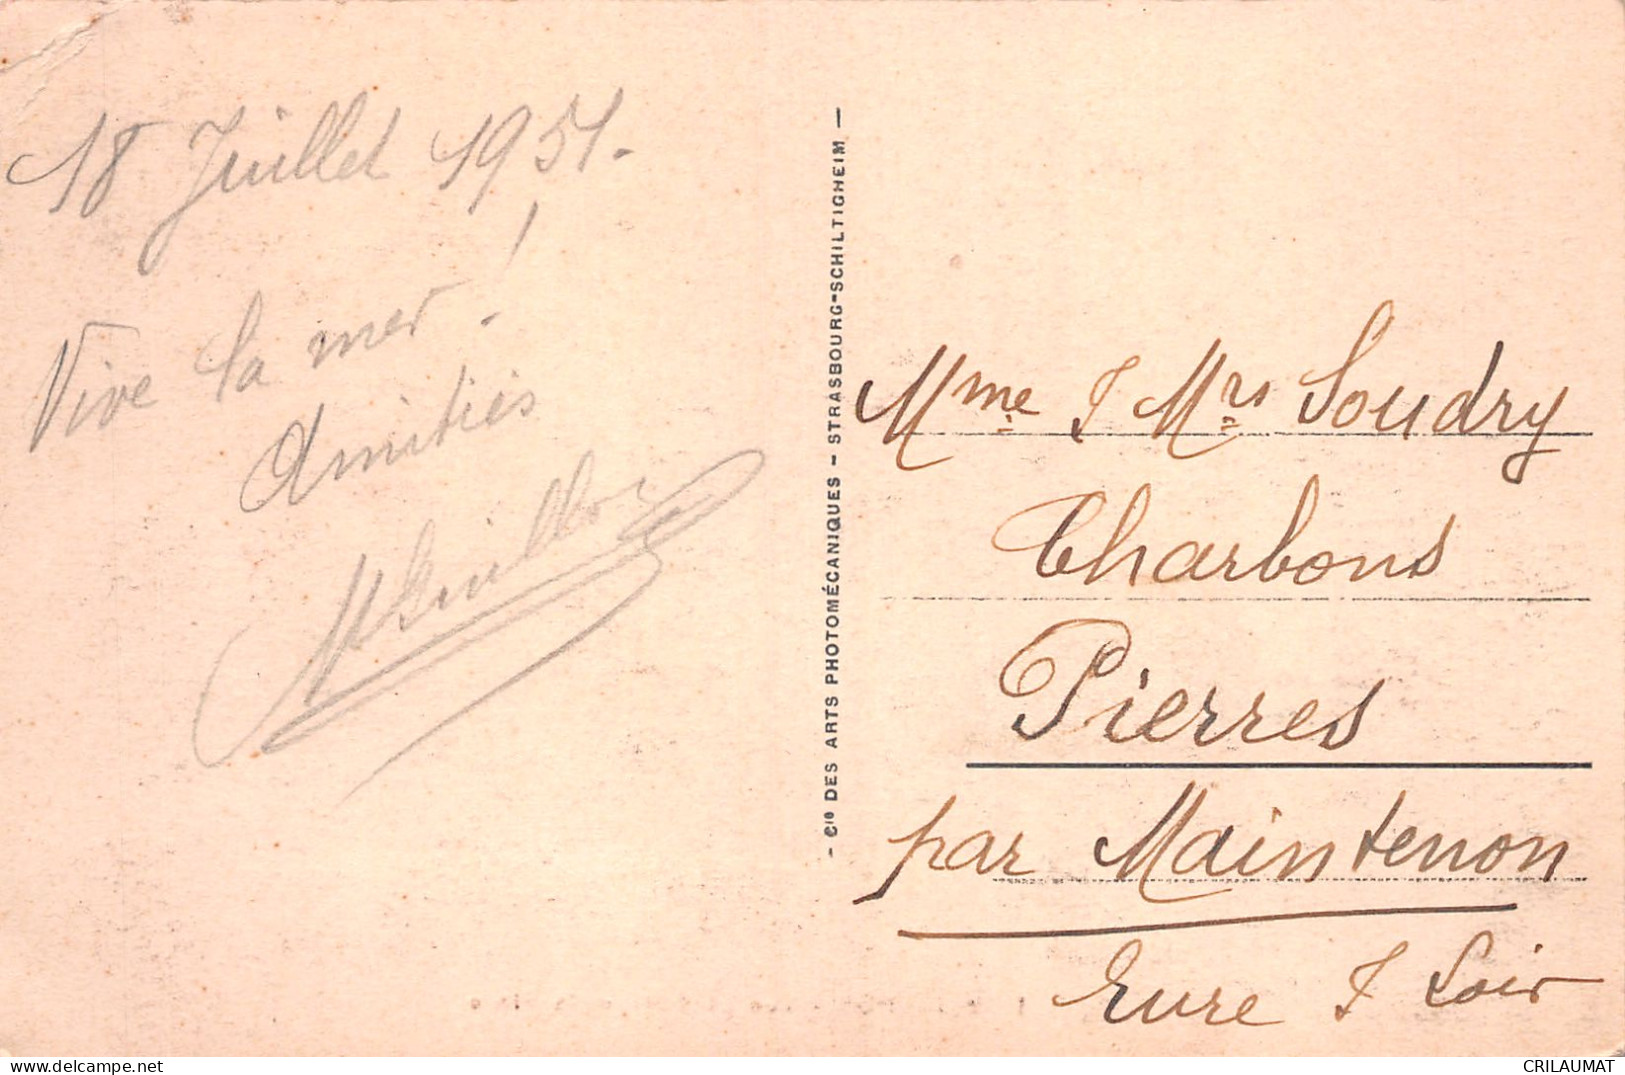 18 Juillet 1951.
Vive la mer !
Amitiés
- Cie DES ARTS PHOTOMÉCANIQUES - STRASBOURG-SCHILTIGHEIM -
Mme & Mrs Soudry
Charbons
Pierres
par Maintenon
Eure & Loir
CRILAUMAT